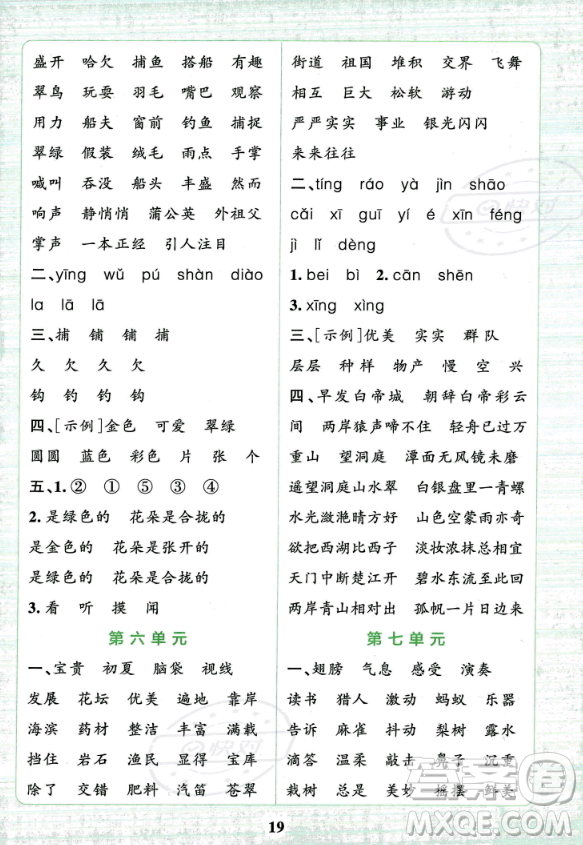 盛开 哈欠 捕鱼 搭船 有趣
翠鸟 玩耍 羽毛 嘴巴 观察
用力 船夫 窗前 钓鱼 捕捉
翠绿 假装 绒毛 雨点 手掌
喊叫 吞没 船头 丰盛 然而
响声 静悄悄 蒲公英 外祖父
掌声 一本正经 引人注目
二、yīng wǔ pú shàn diào
la lā lā
三、捕 铺 铺 捕
久 欠 久 欠
钩 钓 钓 钩
四、[示例]金色 可爱 翠绿
圆圆 蓝色 彩色 片 张 个
五、1.② ① ⑤ ③ ④
2.是绿色的 花朵是合拢的
是金色的 花朵是张开的
是绿色的 花朵是合拢的
3.看 听 摸 闻
第六单元
一、宝贵 初夏 脑袋 视线
发展 花坛 优美 遍地 靠岸
海滨 药材 整洁 丰富 满载
挡住 岩石 渔民 显得 宝库
除了 交错 肥料 汽笛 苍翠
街道 祖国 堆积 交界 飞舞
相互 巨大 松软 游动
严严实实 事业 银光闪闪
来来往往
二、tíng ráo yà jìn shāo
cǎi xī guī yí é xīn féng
jì lǐ dèng
1.bei bì 2.cān shēn
3.xīng xìng
三、[示例]优美 实实 群队
层层 种样 物产 慢 空 兴
四、早发白帝城 朝辞白帝彩云
间 两岸猿声啼不住 轻舟已过万
重山 望洞庭 潭面无风镜未磨
遥望洞庭山水翠 白银盘里一青螺
水光潋滟晴方好 山色空蒙雨亦奇
欲把西湖比西子 淡妆浓抹总相宜
天门中断楚江开 碧水东流至此回
两岸青山相对出 孤帆一片日边来
第七单元
一、翅膀 气息 感受 演奏
读书 猎人 激动 蚂蚁 乐器
告诉 麻雀 抖动 梨树 露水
滴答 温和 敲击 鼻子 沉重
栽树 总是 美妙 摇摆 鲜美
19
快对
快对
答案圈
MXQE.COM